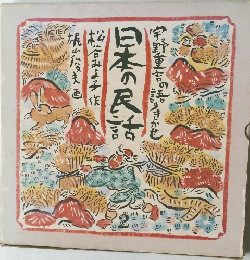 宇野重吉の語りきかせ
日本の民話
松谷みよ子作
梶山俊夫画
2